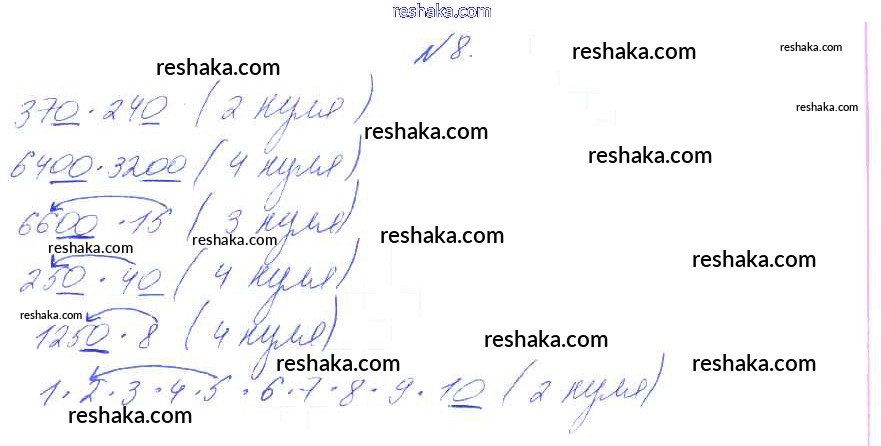 reshaka.com
№8.
reshaka.com
reshaka.com
reshaka.com
370 · 240 (2 нуля)
reshaka.com
reshaka.com
6400 · 3200 (4 нуля)
reshaka.com
6600 · 15 (3 нуля)
reshaka.com
reshaka.com
reshaka.com
reshaka.com
250 · 40 (4 нуля)
reshaka.com
1250 · 8 (4 нуля)
reshaka.com
reshaka.com
reshaka.com
1 · 2 · 3 · 4 · 5 · 6 · 7 · 8 · 9 · 10 (2 нуля)
reshaka.com